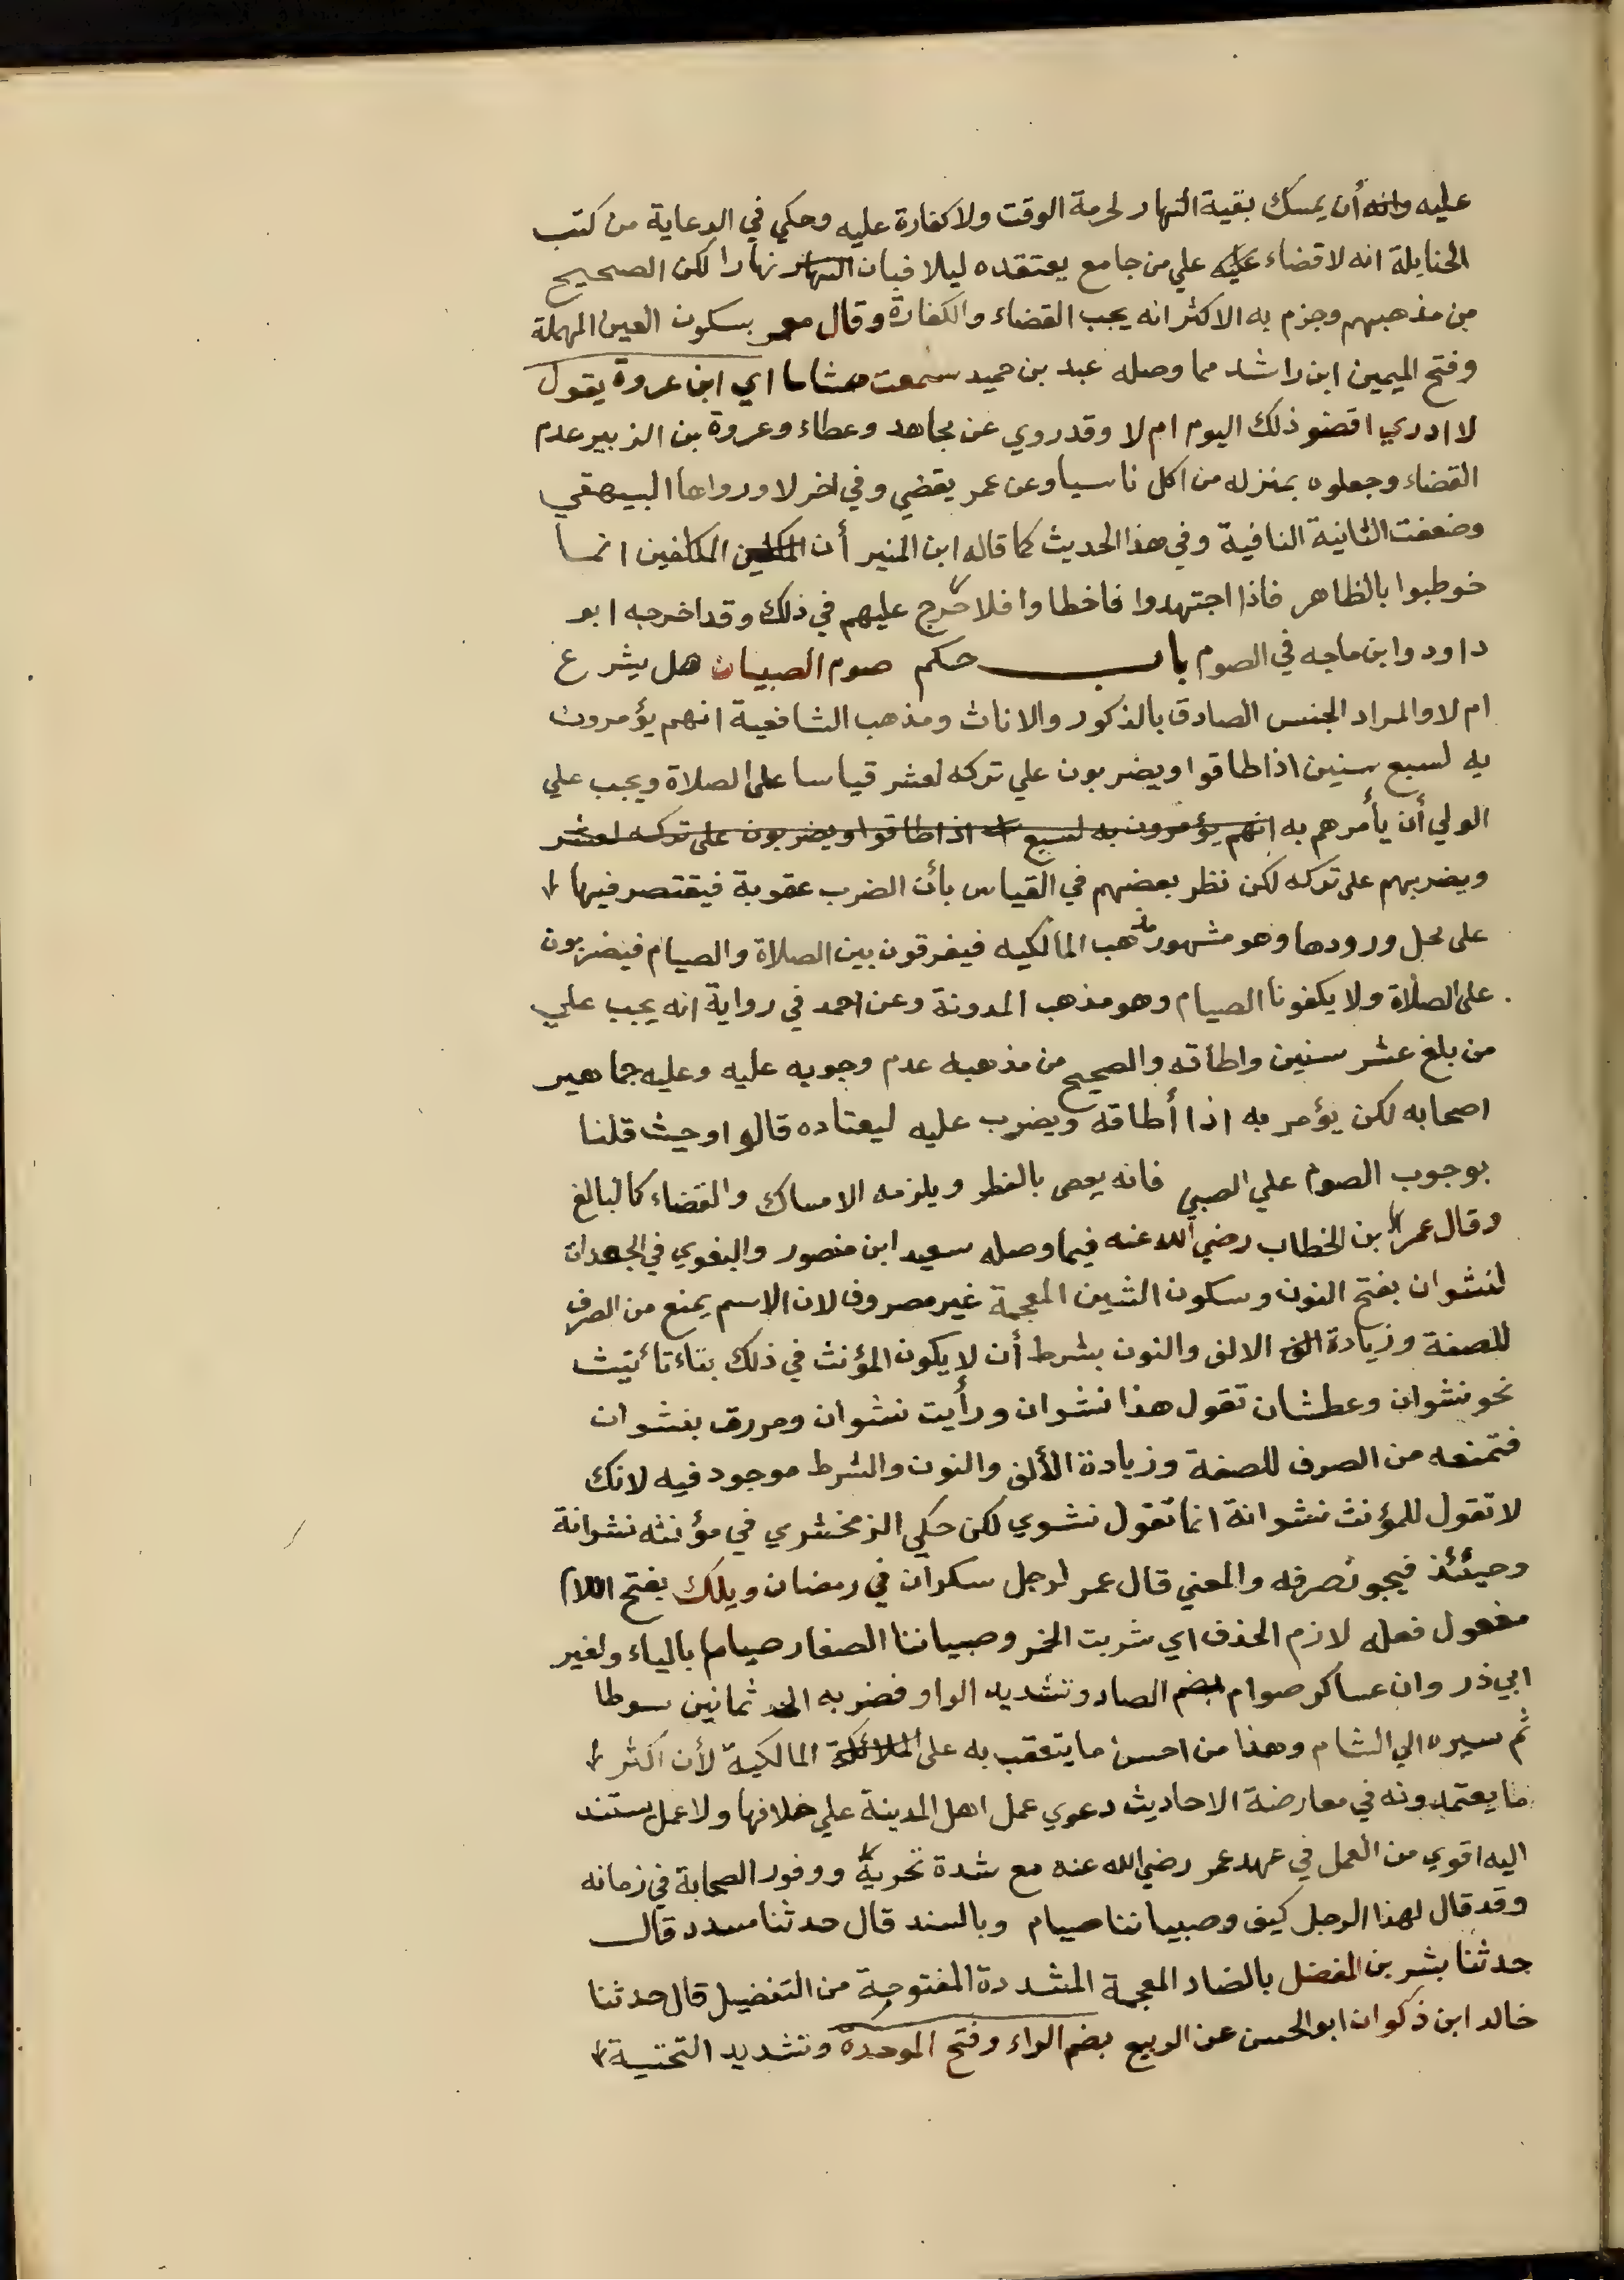 عليه وانه أن يمسك بقية النهار لحرمة الوقت ولا كفارة عليه وحكي في الرعاية من كتب
الحنابلة انه لا قضاء عليه علي من جامع يعتقده ليلا فبان النهار نهارا لكن الصحيح
من مذهبهم وجزم به الاكثر انه يجب القضاء والكفارة وقال معمر بسكون العين المهملة
وفتح الميمين ابن راشد مما وصله عبد بن حميد سمعت هشاما اي ابن عروة يقول
لا ادري اقضو ذلك اليوم ام لا وقد روي عن مجاهد وعطاء وعروة بن الزبير عدم
القضاء وجعلوه بمنزله من اكل ناسيا وعن عمر يقضي وفي اخر لا ورواها البيهقي
وضعفت الثانية النافية وفي هذا الحديث كما قاله ابن المنير أن المكلين المكلفين انما
خوطبوا بالظاهر فاذا اجتهدوا فاخطاوا فلا حرج عليهم في ذلك وقد اخرجه ابو
داود وابن ماجه في الصوم باب حكم صوم الصبيان هل يشرع
ام لا والمراد الجنس الصادق بالذكور والاناث ومذهب الشافعية انهم يؤمرون
به لسبع سنين اذا طاقوا ويضربون علي تركه لعشر قياسا على الصلاة ويجب علي
الولي أن يأمرهم به انهم يؤمرون به لسبع اذا طاقوا ويضربون على تركه لعشر
ويضربهم على تركه لكن نظر بعضهم في القياس بأن الضرب عقوبة فيقتصر فيها
على محل ورودها وهو مشهور مذهب المالكيه فيفرقون بين الصلاة والصيام فيضربون
على الصلاة ولا يكفونا الصيام وهو مذهب المدونة وعن احمد في رواية انه يجب علي
من بلغ عشر سنين واطاقه والصحيح من مذهبه عدم وجوبه عليه وعليه جماهير
اصحابه لكن يؤمر به اذا أطاقه ويضرب عليه ليعتاده قالوا وحيث قلنا
بوجوب الصوم علي الصبي فانه يعصى بالفطر ويلزمه الامساك والقضاء كالبالغ
وقال عمر بن الخطاب رضي الله عنه فيما وصله سعيد ابن منصور والبغوي في الجعدان
لنشوان بفتح النون وسكون الشين المعجمة غير مصروف لان الاسم يمنع من الصرف
للصفة وزيادة الف الالف والنون بشرط أن لا يكون المؤنث في ذلك بتاء تأنيث
نحو نشوان وعطشان تقول هذا نشوان ورأيت نشوان ومررت بنشوان
فتمنعه من الصرف للصفة وزيادة الألف والنون والشرط موجود فيه لانك
لا تقول للمؤنث نشوانة انما تقول نشوي لكن حكي الزمخشري في مؤنثه نشوانة
وحينئذ فيجوز صرفه والمعني قال عمر لرجل سكران في رمضان ويلك بفتح اللام
مفعول فعله لازم الحذف اي شربت الخمر وصبياننا الصغار صيام بالياء ولغير
ابي ذر وابن عساكر صوام بضم الصاد وتشديد الواو فضربه الحد ثمانين سوطا
ثم سيره الي الشام وهذا من احسن ما يتعقب به على الملائكة المالكية لأن اكثر
ما يعتمدونه في معارضة الاحاديث دعوي عمل اهل المدينة علي خلافها ولا عمل يستند
اليه اقوي من العمل في عهد عمر رضي الله عنه مع شدة تحريه ووفور الصحابة في زمانه
وقد قال لهذا الرجل كيف وصبياننا صيام وبالسند قال حدثنا مسدد قال
حدثنا بشر بن المفضل بالضاد المعجمة المشددة المفتوحة من التفضيل قال حدثنا
خالد ابن ذكوان ابو الحسن عن الربيع بضم الراء وفتح الموحدة وتشديد التحتية